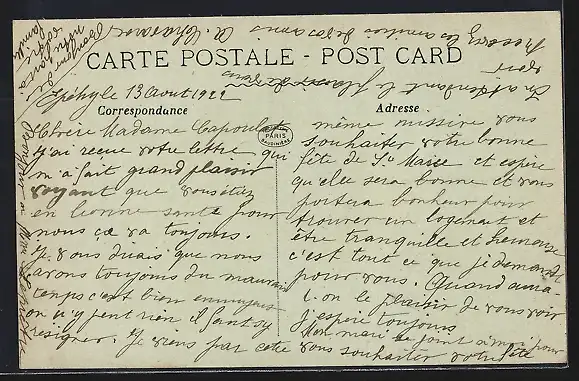 CARTE POSTALE - POST CARD
Epéhy le 13 Aout 1922
Correspondance
Chère Madame Capoulat
j'ai recue votre lettre qui
m'a fait grand plaisir
voyant que vous étiez
en bonne santé pour
nous ça va toujours.
Je vous dirais que nous
avons toujours du mauvais
temps c'est bien ennuyeux
on n'y peut rien il faut s'y
resigner. Je viens par cette
PARIS
Adresse
même missive vous
souhaiter votre bonne
fête de Ste Marie et espère
qu'elle sera bonne et vous
portera bonheur pour
trouver un logement et
être tranquille et heureuse
c'est tout ce que je demande
pour vous. Quand aura
t-on le plaisir de vous voir
J'espère toujours
Mon mari se joint à moi pour
vous souhaiter votre fête
En attendant le plaisir de vous
voir
Recevez les amitiés de vos amis